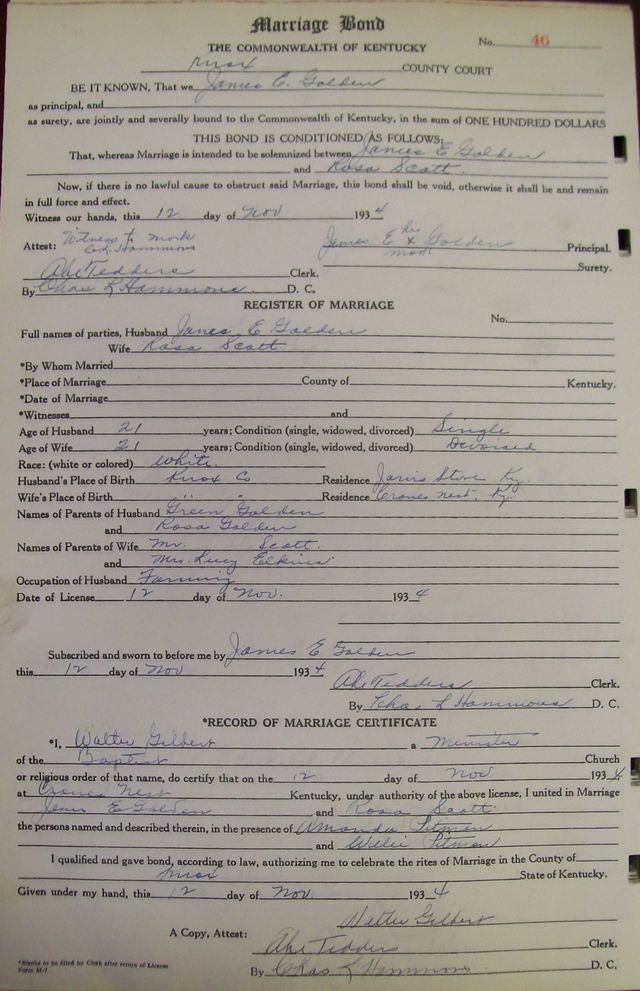 Marriage Bond
No. 46
THE COMMONWEALTH OF KENTUCKY
Knox COUNTY COURT
BE IT KNOWN, That we James E. Golden
as principal, and
as surety, are jointly and severally bound to the Commonwealth of Kentucky, in the sum of ONE HUNDRED DOLLARS
THIS BOND IS CONDITIONED AS FOLLOWS:
That, whereas Marriage is intended to be solemnized between James E Golden
and Rosa Scott.
Now, if there is no lawful cause to obstruct said Marriage, this bond shall be void, otherwise it shall be and remain
in full force and effect.
Witness our hands, this 12 day of Nov 1934
Attest: Witness to mark
Hammons
James E his x mark Golden Principal.
Surety.
Abe Tedders Clerk.
By Chas L Hammons. D. C.
REGISTER OF MARRIAGE
No.
Full names of parties, Husband James E Golden
Wife Rosa Scott
*By Whom Married
*Place of Marriage County of Kentucky.
*Date of Marriage
*Witnesses and
Age of Husband 21 years; Condition (single, widowed, divorced) Single
Age of Wife 21 years; Condition (single, widowed, divorced) Devoised
Race: (white or colored) White.
Husband's Place of Birth Knox Co Residence Jarvis Store Ky.
Wife's Place of Birth " " " Residence Cranes Nest, Ky.
Names of Parents of Husband Green Golden
and Rosa Golden
Names of Parents of Wife Mr. Scott.
and Mrs. Lucy Elkins
Occupation of Husband Farming
Date of License 12 day of Nov. 1934
Subscribed and sworn to before me by James E Golden
this 12 day of Nov 1934
Abe Tedders Clerk.
By Chas L Hammons D. C.
*RECORD OF MARRIAGE CERTIFICATE
*I, Walter Gilbert a Minister
of the Baptist Church
or religious order of that name, do certify that on the 12 day of Nov 1934
at Cranes Nest Kentucky, under authority of the above license, I united in Marriage
E Golden and Rosa Scott.
the persons named and described therein, in the presence of Amanda Pitman
and Willie Pitman
I qualified and gave bond, according to law, authorizing me to celebrate the rites of Marriage in the County of
Knox State of Kentucky.
Given under my hand, this 12 day of Nov. 1934
Walter Gilbert
A Copy, Attest:
Abe Tedders Clerk.
By Chas L Hammons D. C.
*Blanks to be filled by Clerk after return of License
Form M-7